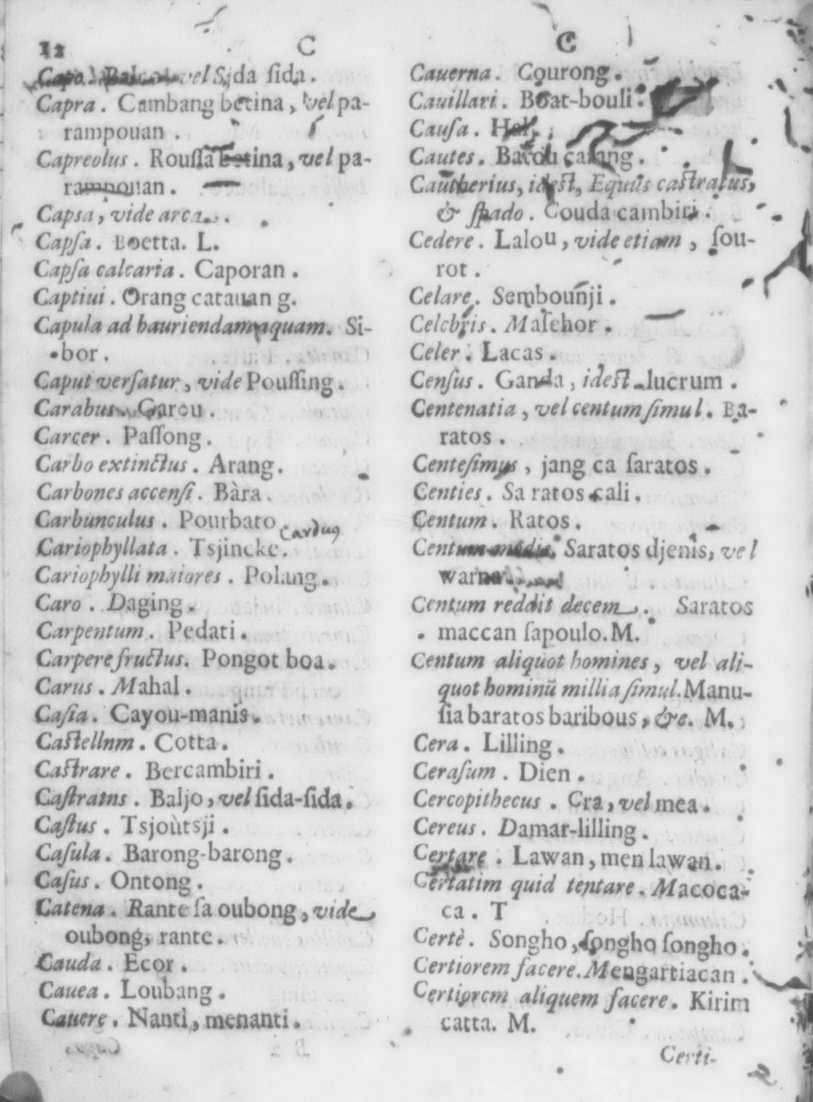 12 C
Capo. vel Sida sida.
Capra. Cambang betina, vel pa-
rampouan.
Capreolus. Roussa betina, vel pa-
rampouan.
Capsa, vide arca.
Capsa. Boetta. L.
Capsa calcaria. Caporan.
Captiui. Orang catauang.
Capula ad hauriendam aquam. Si-
bor.
Caput versatur, vide Poussing.
Carabus. Garou.
Carcer. Passong.
Carbo extinctus. Arang.
Carbones accensi. Bàra.
Carbunculus. Pourbato
Carduq
Cariophyllata. Tsjincke.
Cariophylli maiores. Polang.
Caro. Daging.
Carpentum. Pedati.
Carpere fructus. Pongot boa.
Carus. Mahal.
Casia. Cayou-manis.
Castellnm. Cotta.
Castrare. Bercambiri.
Castratns. Baljo, vel sida-sida.
Castus. Tsjoùtsji.
Casula. Barong-barong.
Casus. Ontong.
Catena. Rante sa oubong, vide
oubong, rante.
Cauda. Ecor.
Cauea. Loubang.
Cauere. Nanti, menanti.
C
Cauerna. Courong.
Cauillari. Boat-bouli.
Causa.
Cautes. Batou carang.
Cautherius, idest, Equus castratus,
& spado. Couda cambiri.
Cedere. Lalou, vide etiam, sou-
rot.
Celare. Sembounji.
Celebris. Maschor.
Celer. Lacas.
Census. Ganda, idest lucrum.
Centenatia, vel centum simul. Ba-
ratos.
Centesimus, jang ca saratos.
Centies. Sa ratos cali.
Centum. Ratos.
Centum Saratos djenis, vel
warna.
Centum reddit decem. Saratos
maccan sapoulo. M.
Centum aliquot homines, vel ali-
quot hominũ millia simul. Manu-
sia baratos baribous, &c. M.
Cera. Lilling.
Cerasum. Dien.
Cercopithecus. Cra, vel mea.
Cereus. Damar-lilling.
Certare. Lawan, men lawan.
Certatim quid tentare. Macoca-
ca. T
Certè. Songho, songho songho.
Certiorem facere. Mengartiacan.
Certiorem aliquem facere. Kirim
catta. M.
Certi-